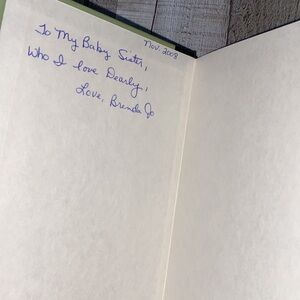 Nov. 2008
To My Baby Sister,
Who I love Dearly,
Love, Brenda Jo